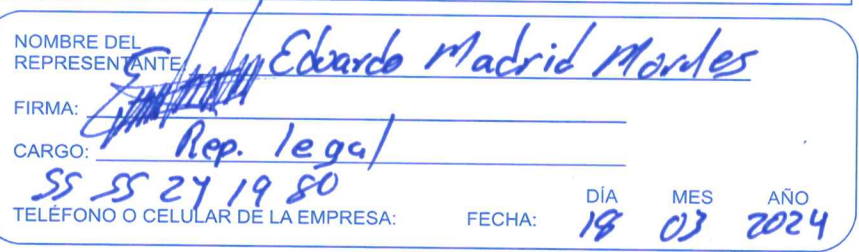 NOMBRE DEL
REPRESENTANTE: Eduardo Madrid Morales
FIRMA:
CARGO: Rep. legal
55 55 24 19 80
TELÉFONO O CELULAR DE LA EMPRESA: FECHA: DÍA MES AÑO
18 03 2024